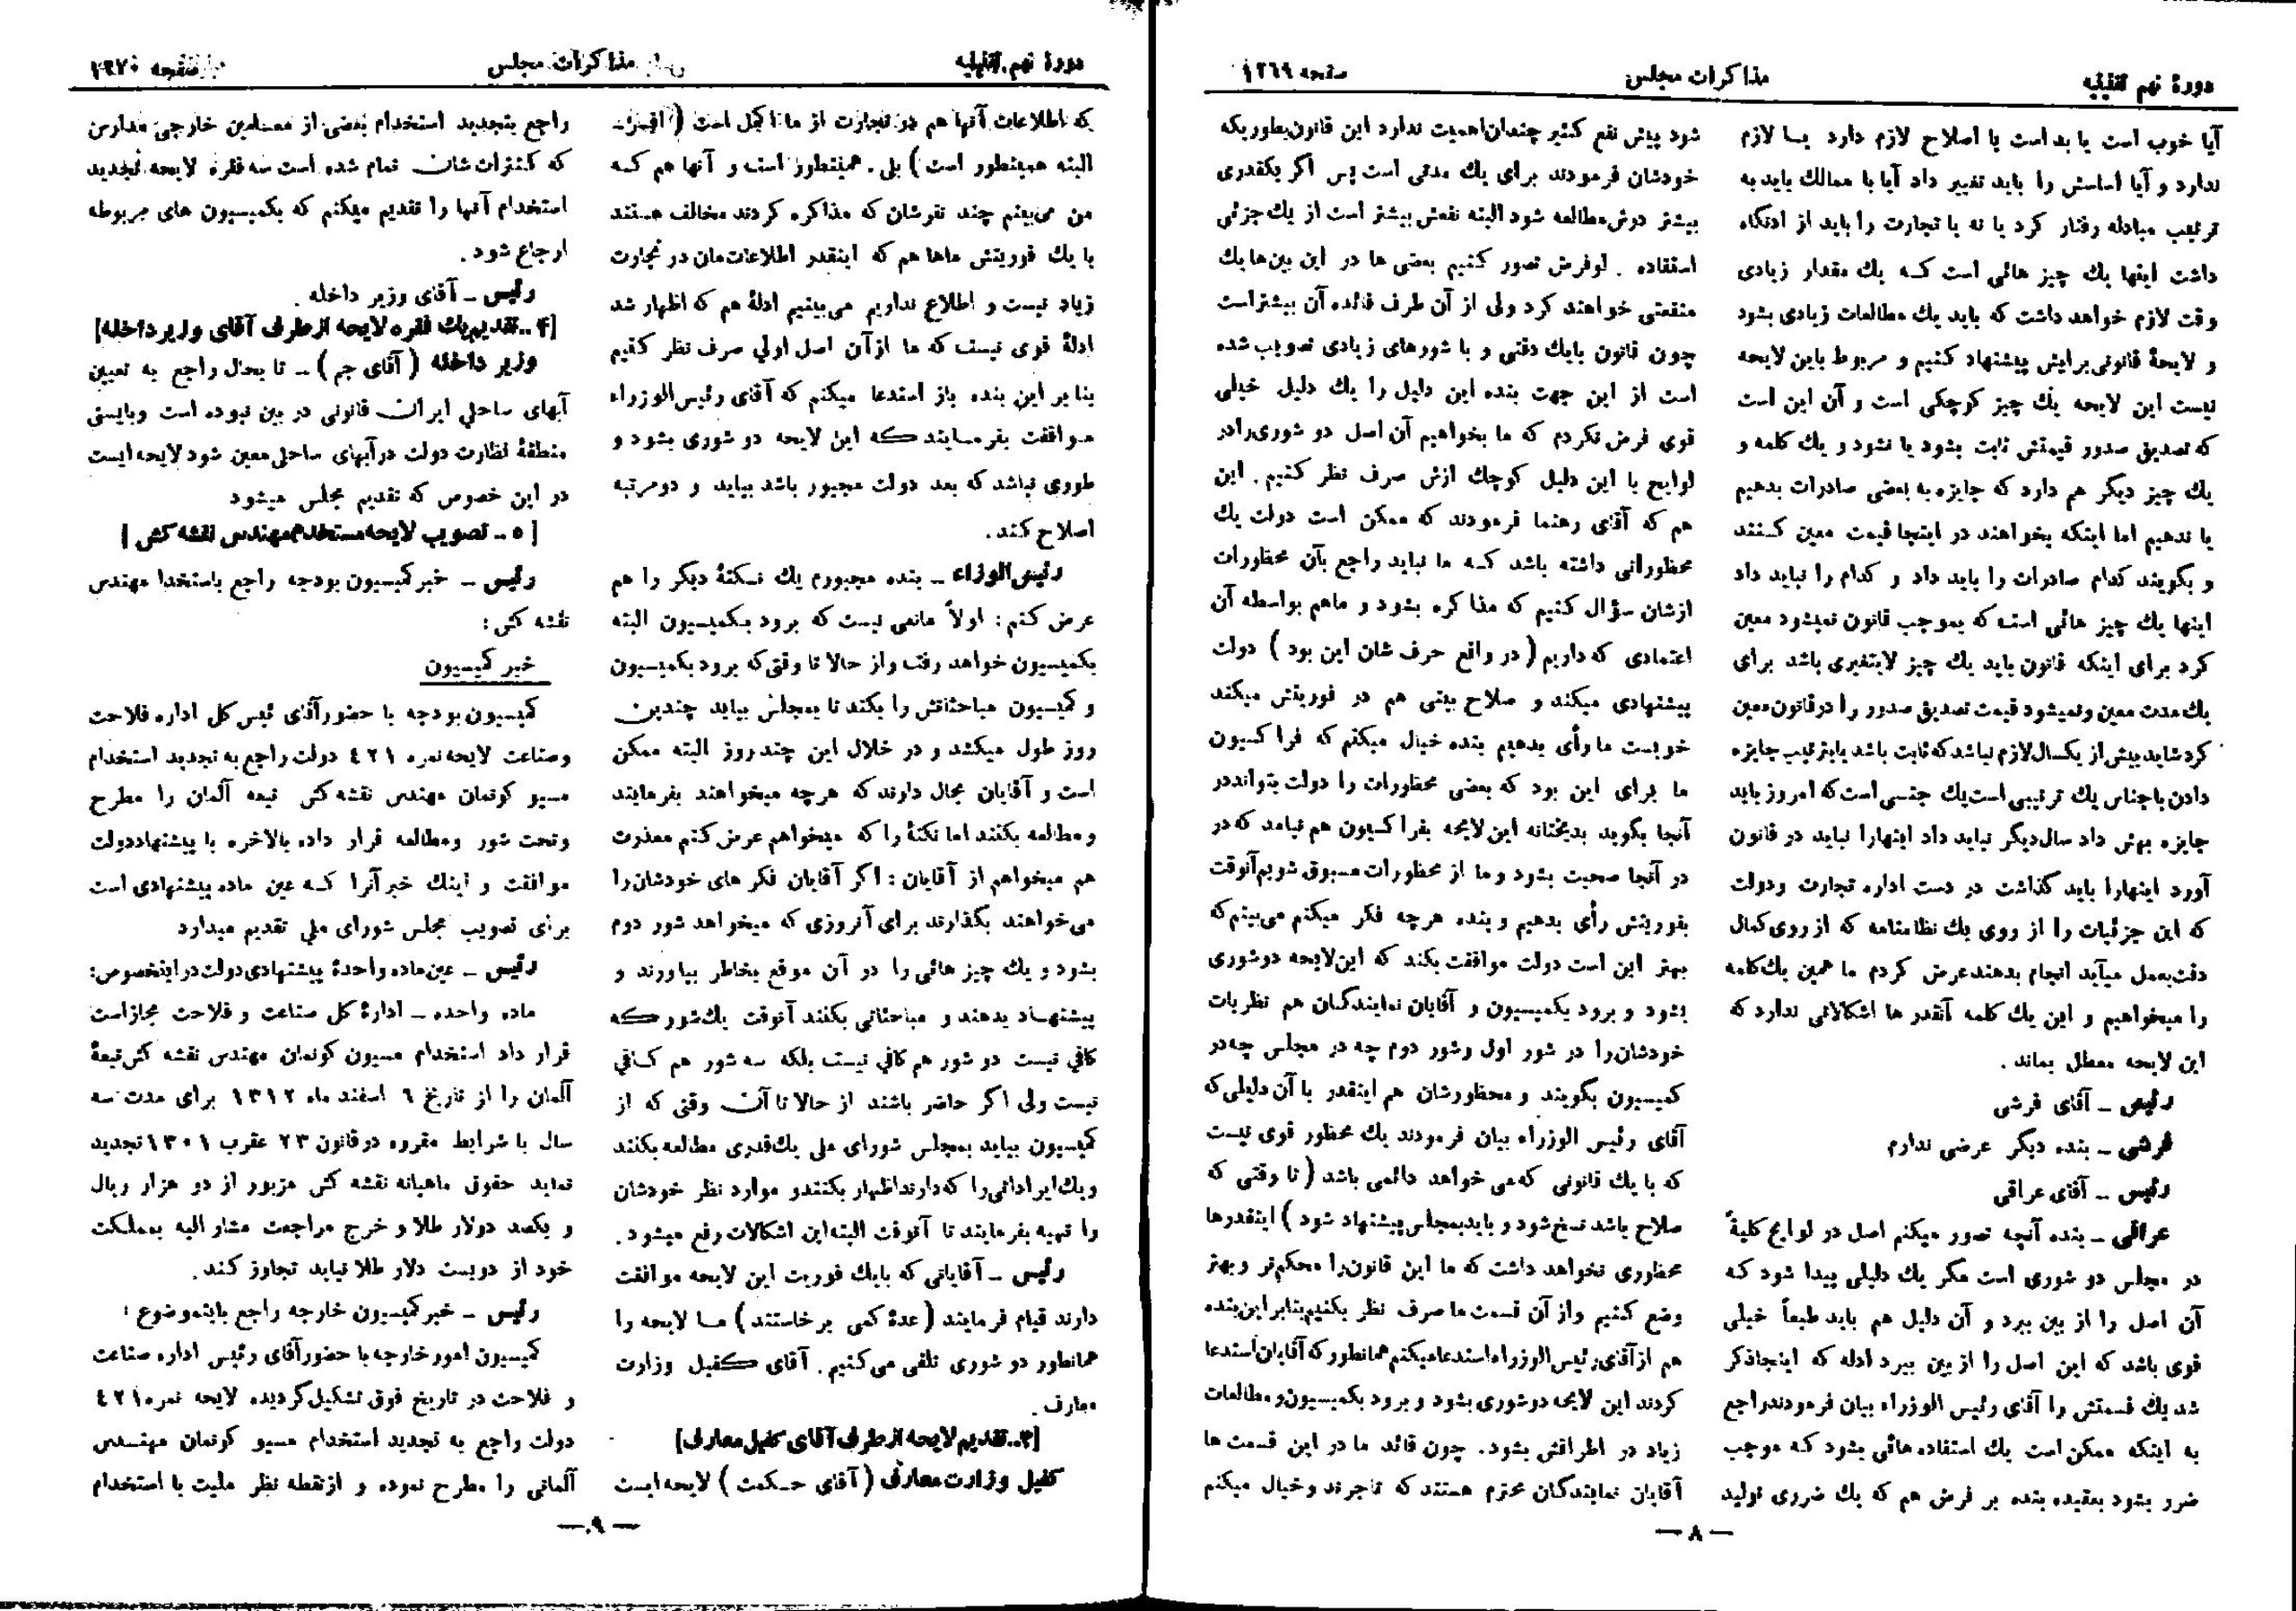 دورهٔ نهم تقنینیه
مذاکرات مجلس
صفحه ۱۲٦۹
آیا خوب است یا بد است یا اصلاح لازم دارد یا لازم
ندارد و آیا اساسش را باید تغییر داد آیا با ممالک باید به
ترتیب مبادله رفتار کرد یا نه یا تجارت را باید آزاد نگاه
داشت اینها یك چیز هائی است که یك مقدار زیادی
وقت لازم خواهد داشت که باید یك مطالعات زیادی بشود
و لایحهٔ قانونی برایش پیشنهاد کنیم و مربوط باین لایحه
نیست این لایحه یك چیز کوچکی است و آن این است
که تصدیق صدور قیمتش ثابت بشود یا نشود و یك کلمه و
یك چیز دیگر هم دارد که جایزه به بعضی صادرات بدهیم
یا ندهیم اما اینکه بخواهند در اینجا قیمت معین کنند
و بگویند کدام صادرات را باید داد و کدام را نباید داد
اینها یك چیز هائی است که بموجب قانون نمیشود معین
کرد برای اینکه قانون باید یك چیز لایتغیری باشد برای
یك مدت معین و نمیشود قیمت تصدیق صدور را در قانون معین
کرد شاید بیش از یکسال لازم نباشد که ثابت باشد یا بترتیب جایزه
دادن با جناس یك ترتیبی است یك جنسی است که امروز باید
جایزه بهش داد سال دیگر نباید داد اینهارا نباید در قانون
آورد اینهارا باید گذاشت در دست اداره تجارت و دولت
که این جزئیات را از روی یك نظامنامه که از روی کمال
دقت بعمل میآید انجام بدهند عرض کردم ما همین یك کلمه
را میخواهیم و این یك کلمه آنقدر ها اشکالاتی ندارد که
این لایحه معطل بماند .
رئیس ــ آقای قرشی
قرشی ــ بنده دیگر عرضی ندارم
رئیس ــ آقای عراقی
عراقی ــ بنده آنچه تصور میکنم اصل در لوایح کلیةً
در مجلس دو شوری است مگر یك دلیلی پیدا شود که
آن اصل را از بین ببرد و آن دلیل هم باید طبعاً خیلی
قوی باشد که این اصل را از بین ببرد ادله که اینجا ذکر
شد یك قسمتش را آقای رئیس الوزراء بیان فرمودند راجع
به اینکه ممکن است یك استفاده هائی بشود که موجب
ضرر بشود بعقیده بنده بر فرض هم که یك ضرری تولید
شود پیش نفع کثیر چندان اهمیت ندارد این قانون بطوریکه
خودشان فرمودند برای یك مدتی است پس اگر یکقدری
بیشتر دورش مطالعه شود البته نفعش بیشتر است از یك جزئی
استفاده . لوفرض تصور کنیم بعضی ها در این بین ها یك
منفعتی خواهند کرد ولی از آن طرف فائده آن بیشتر است
چون قانون با یك دقتی و با شورهای زیادی تصویب شده
است از این جهت بنده این دلیل را یك دلیل خیلی
قوی فرض نکردم که ما بخواهیم آن اصل دو شوری را در
لوایح با این دلیل کوچك ازش صرف نظر کنیم . این
هم که آقای رهنما فرمودند که ممکن است دولت یك
محظوراتی داشته باشد که ما نباید راجع بآن محظورات
ازشان سؤال کنیم که مذاکره بشود و ماهم بواسطه آن
اعتمادی که داریم ( در واقع حرف شان این بود ) دولت
پیشنهادی میکند و صلاح بینی هم در فوریتش میکند
خوبست ما رأی بدهیم بنده خیال میکنم که فراکسیون
ما برای این بود که بعضی محظورات را دولت بتواند در
آنجا بگوید بدبختانه این لایحه بفراکسیون هم نیامد که در
در آنجا صحبت بشود و ما از محظورات مسبوق شویم آنوقت
بفوریتش رأی بدهیم و بنده هرچه فکر میکنم می‌بینم که
بهتر این است دولت موافقت بکند که این لایحه دو شوری
بشود و برود بکمیسیون و آقایان نمایندگان هم نظریات
خودشان را در شور اول و شور دوم چه در مجلس چه در
کمیسیون بگویند و محظورشان هم اینقدر با آن دلیلی که
آقای رئیس الوزراء بیان فرمودند یك محظور قوی نیست
که با یك قانونی که می خواهد دائمی باشد ( تا وقتی که
صلاح باشد نسخ شود و باید بمجلس پیشنهاد شود ) اینقدرها
محظوری نخواهد داشت که ما این قانون را محکم‌تر و بهتر
وضع کنیم و از آن قسمت ما صرف نظر بکنیم بنابر این بنده
هم از آقای رئیس الوزراء استدعا میکنم همانطور که آقایان استدعا
کردند این لایحه دو شوری بشود و برود بکمیسیون و مطالعات
زیاد در اطرافش بشود. چون قائد ما در این قسمت ها
آقایان نمایندگان محترم هستند که تاجرند و خیال میکنم
— ۸ —
دورهٔ نهم تقنینیه
مذاکرات مجلس
صفحه ۱۲۷۰
که اطلاعات آنها هم در تجارت از ما اکمل است ( افسر ــ
البته همینطور است ) بلی . همینطور است و آنها هم که
من می‌بینم چند نفرشان که مذاکره کردند مخالف هستند
با یك فوریتش ماها هم که اینقدر اطلاعات‌مان در تجارت
زیاد نیست و اطلاع نداریم می‌بینیم ادلهٔ هم که اظهار شد
ادلهٔ قوی نیست که ما از آن اصل اولی صرف نظر کنیم
بنا بر این بنده باز استدعا میکنم که آقای رئیس الوزراء
موافقت بفرمایند که این لایحه دو شوری بشود و
طوری نباشد که بعد دولت مجبور باشد بیاید و دومرتبه
اصلاح کند.
رئیس الوزراء ــ بنده مجبورم یك نکتهٔ دیگر را هم
عرض کنم : اولاً مانعی نیست که برود بکمیسیون البته
بکمیسیون خواهد رفت و از حالا تا وقتی که برود بکمیسیون
و کمیسیون مباحثاتش را بکند تا بمجلس بیاید چندین
روز طول میکشد و در خلال این چند روز البته ممکن
است و آقایان مجال دارند که هرچه میخواهند بفرمایند
و مطالعه بکنند اما نکتهٔ را که میخواهم عرض کنم معذرت
هم میخواهم از آقایان : اگر آقایان فکر های خودشان را
می‌خواهند بگذارند برای آنروزی که میخواهد شور دوم
بشود و یك چیز هائی را در آن موقع بخاطر بیاورند و
پیشنهاد بدهند و مباحثاتی بکنند آنوقت یك شور که
کافی نیست دو شور هم کافی نیست بلکه سه شور هم کافی
نیست ولی اگر حاضر باشند از حالا تا آن وقتی که از
کمیسیون بیاید بمجلس شورای ملی یك قدری مطالعه بکنند
و یك ایراداتی را که دارند اظهار بکنند و موارد نظر خودشان
را تهیه بفرمایند تا آنوقت البته این اشکالات رفع میشود .
رئیس ــ آقایانی که با یك فوریت این لایحه موافقت
دارند قیام فرمایند ( عدهٔ کمی برخاستند ) ما لایحه را
همانطور دو شوری تلقی می کنیم . آقای کفیل وزارت
معارف .
[۳ــ تقدیم لایحه از طرف آقای کفیل معارف]
کفیل وزارت معارف ( آقای حکمت ) لایحه ایست
راجع بتجدید استخدام بعضی از معلمین خارجی مدارس
که کنترات شان تمام شده است سه فقره لایحه تجدید
استخدام آنها را تقدیم میکنم که بکمیسیون های مربوطه
ارجاع شود .
رئیس ــ آقای وزیر داخله .
[۴ ــ تقدیم یك فقره لایحه از طرف آقای وزیر داخله]
وزیر داخله ( آقای جم ) ــ تا بحال راجع به تعیین
آبهای ساحلی ایران قانونی در بین نبوده است و بایستی
منطقهٔ نظارت دولت در آبهای ساحلی معین شود لایحه ایست
در این خصوص که تقدیم مجلس میشود
[ ۵ ــ تصویب لایحه مستخدم مهندس نقشه کش ]
رئیس ــ خبر کمیسیون بودجه راجع باستخدا مهندس
نقشه کش :
خبر کمیسیون
کمیسیون بودجه با حضور آقای ئیس کل اداره فلاحت
و صناعت لایحه نمره ٤۲۱ دولت راجع به تجدید استخدام
مسیو کوتمان مهندس نقشه کش تبعه آلمان را مطرح
و تحت شور و مطالعه قرار داده بالاخره با پیشنهاد دولت
موافقت و اینك خبر آنرا که عین ماده پیشنهادی است
برای تصویب مجلس شورای ملی تقدیم میدارد
رئیس ــ عین ماده واحدهٔ پیشنهادی دولت در اینخصوص :
ماده واحده ــ ادارهٔ کل صناعت و فلاحت مجاز است
قرار داد استخدام مسیون کوتمان مهندس نقشه کش تبعهٔ
آلمان را از تاریخ ٦ اسفند ماه ۱۳۱۲ برای مدت سه
سال با شرایط مقرره در قانون ۲۳ عقرب ۱۳۰۱ تجدید
نماید حقوق ماهیانه نقشه کش مزبور از دو هزار ریال
و یکصد دولار طلا و خرج مراجعت مشار الیه بمملکت
خود از دویست دلار طلا نباید تجاوز کند .
رئیس ــ خبر کمیسیون خارجه راجع باینموضوع :
کمیسیون امور خارجه با حضور آقای رئیس اداره صناعت
و فلاحت در تاریخ فوق تشکیل گردیده لایحه نمره ٤۲۱
دولت راجع به تجدید استخدام مسیو کوتمان مهندس
آلمانی را مطرح نموده و از نقطه نظر ملیت با استخدام
— ۹ —